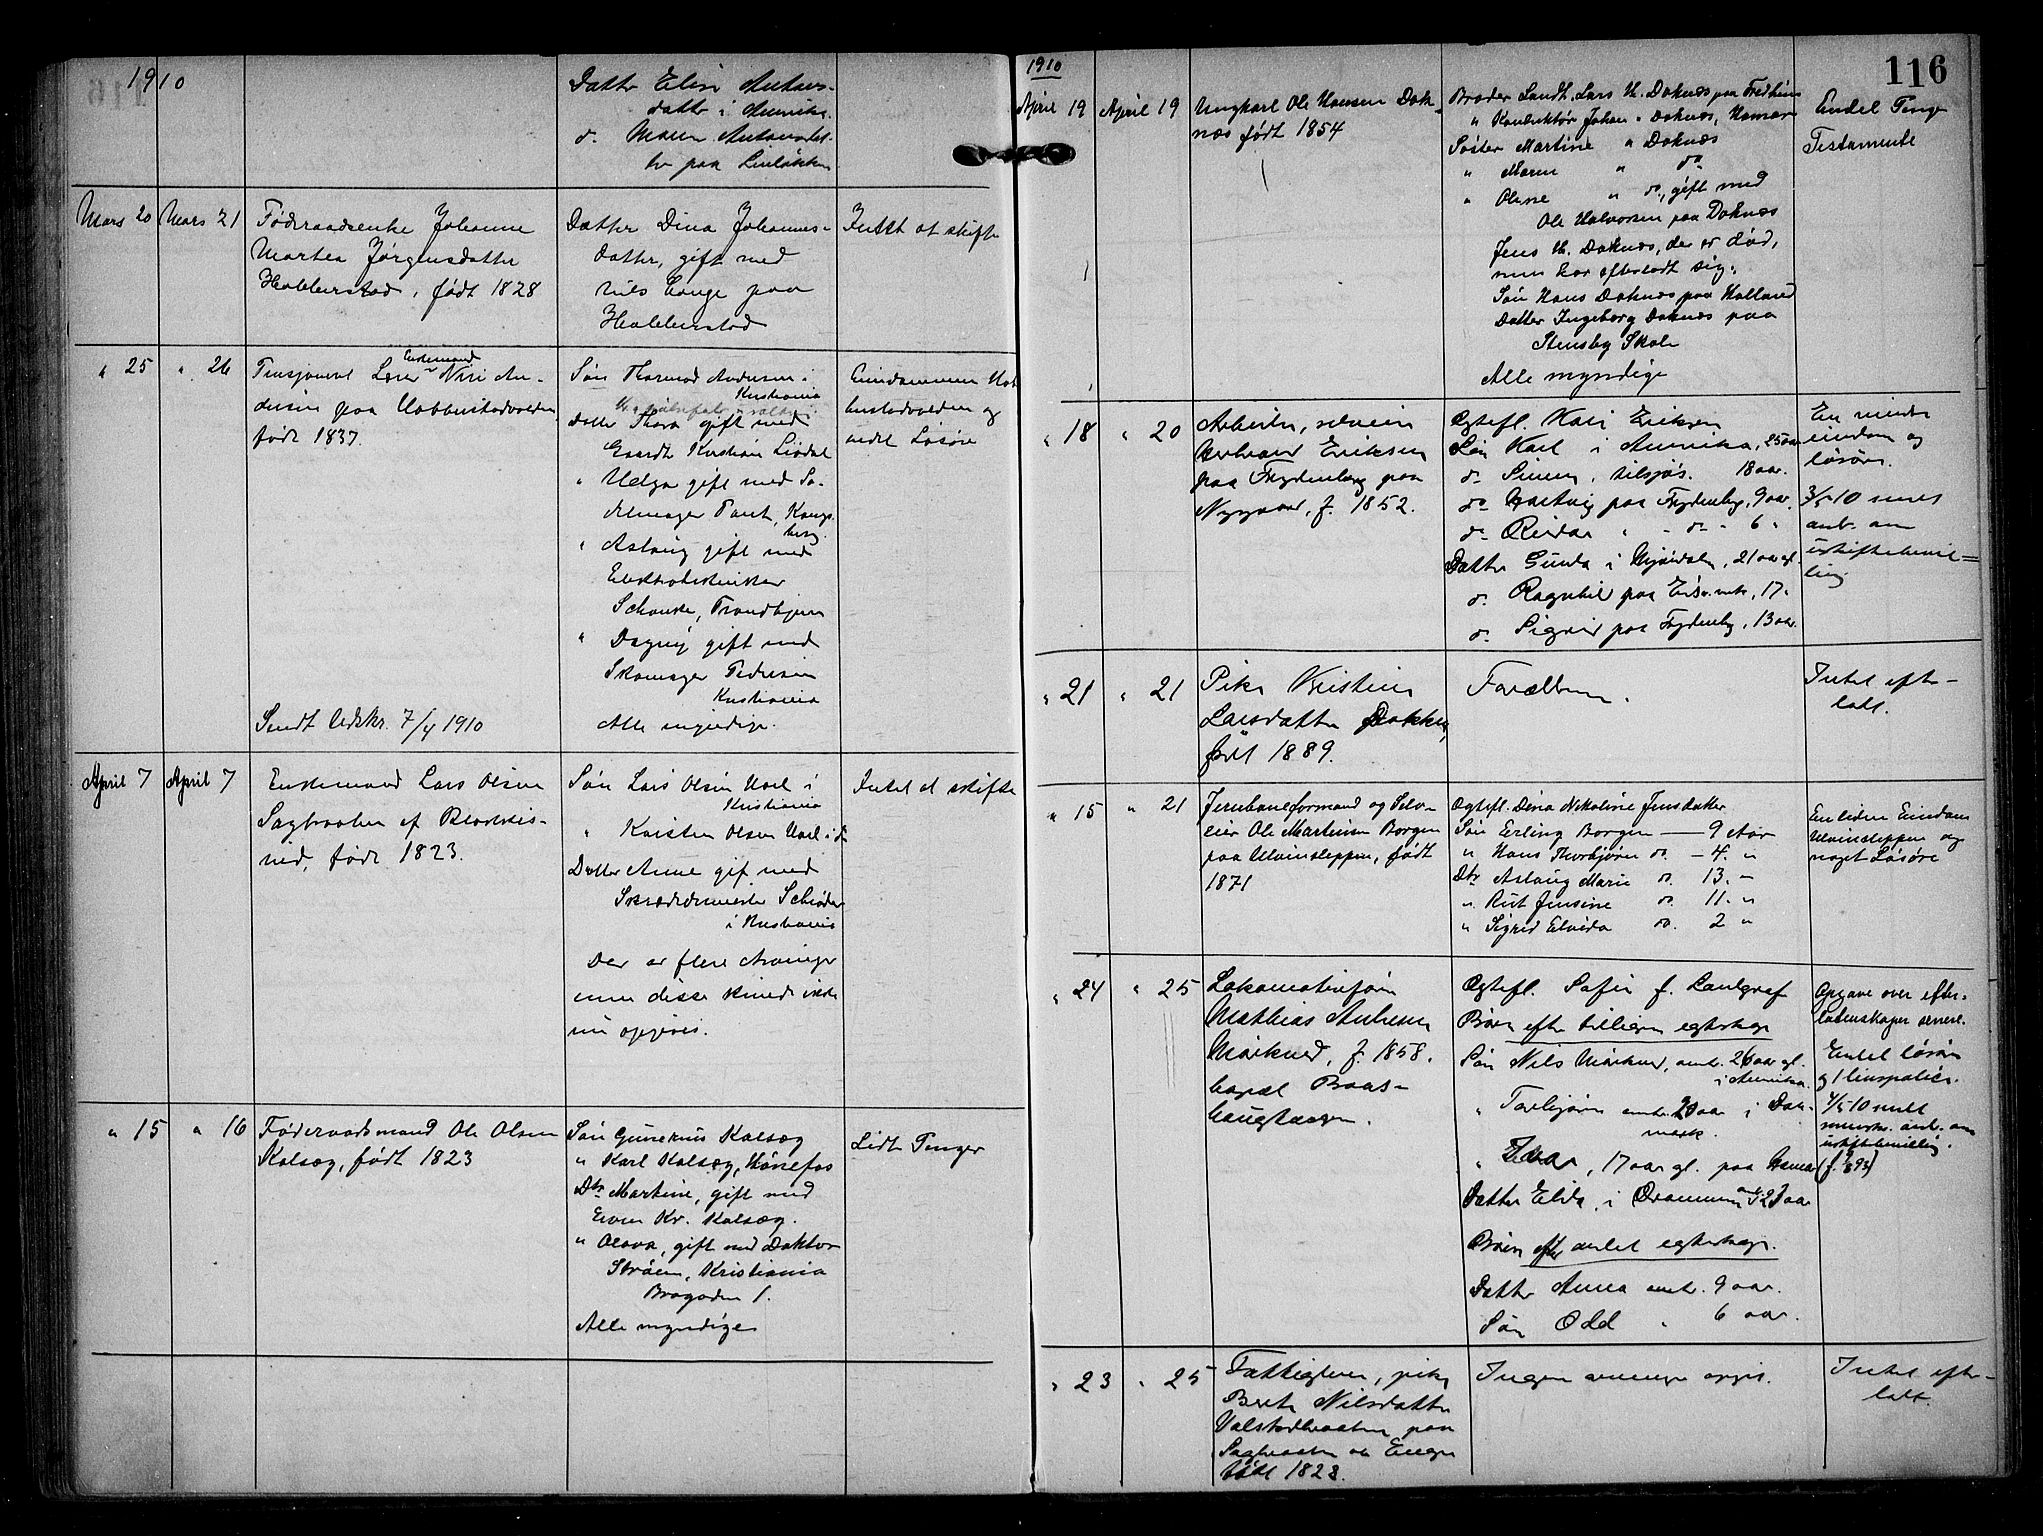 1910
Datter Elise Antons-
datter i Amerika
do. Maren Antonsdat-
ter paa
Mars 20 Mars 21 Føderaadsenke Johanne
Martea Jørgensdatter
Habberstad, født 1828
Datter Dina Johannes-
datter, gift med
Nils Hauge paa
Habberstad
Intet at skifte
" 25 " 26 Pensioneret Lærer Enkemand Nin An-
dersen paa
født 1837.
Sendt Ledskr. 7/4 1910
Søn Thormod Andersen i
Kristiania
Datter Thora gift med
Kristian
" Helga gift med Sa-
delmager Kongs-
berg
" Aslaug gift med
Elektrotekniker
Schanke, Trondhjem
" Dagny gift med
Skomager Pedersen
Kristiania
Alle myndige.
Eiendommen Hab-
berstadvolden og
endel Løsøre
April 7 April 7 Enkemand Lars Olsen
Sagbraaten af
født 1823.
Søn Lars Olsen i
Kristiania
" Karsten Olsen i do
Datter Anne gift med
Skræddermester Schrøder
i Kristiania
Der er flere Arvinger
men disse kunde ikke
nu opgives.
Intet at skifte
" 15 " 16 Føderaadsmand Ole Olsen
Kolsæg, født 1823
Søn Gunerius Kolsæg
" Karl Kolsæg, Hønefos
Dtr Martine, gift med
Even Kr. Kolsæg.
" Olava, gift med Doktor
Strøem, Kristiania
Brogaden 1.
Alle myndige
Lidt Penger
1910
116
April 19 April 19 Ungkarl Ole Hansen Dok-
næs født 1854
Broder Landh. Lars H. Doknæs paa Fredheim
" Konduktør Johan " Doknæs, Hamar
Søster Martine " Doknæs
" Maren " do
" Oline " do, gift med
Ole Halvorsen paa Doknæs
Jens H. Doknæs, der er død,
men har efterladt sig:
Søn Hans Doknæs paa Holland
Datter Ingeborg Doknæs paa
Stensby Skole
Alle myndige
Endel Penge
Testamente
" 18 " 20 Arbeider, selveier
Eriksen
paa Frydenberg paa
Nygaard, f. 1852.
Ægtefl. Kari Eriksen
Søn Karl i Amerika, 25 aar
do. Simen, tilsjøs. 18 aar.
do Hartvig paa Frydenbg, 9 aar.
do. Reidar " - do - 6 "
Datter Gunda i Mjøndalen, 21 aar gl.
do. Ragnhil paa Eidsv.verk, 17.
do. Sigrid paa Frydenbg, 13 aar.
En mindre
eiendom og
løsøre.
3/5 10 sendt
anb. om
uskiftebevil=
ling
" 21 " 21 Pike Kristine
Larsdatter Dokken,
født 1889.
Forældrene.
Intet efter-
ladt.
" 15 " 21 Jernbaneformand og Selv-
eier Ole Martinius Borgen
paa Ulvinsleppen, født
1871
Ægtefl. Dina Nikoline Jensdatter
Søn Erling Borgen — 9 Aar
" Hans Thorbjørn do. — 4. "
Dtr Aslaug Marie do. 13. "
" Rut Jensine do. 11. "
" Sigrid Elvida do. 2 "
En liden Eiendom
Ulvinsleppen og
noget Løsøre
" 24 " 25 Lokomotivfører
Mathias Andersen
Mørkved, f. 1858.
bopæl Braas-
haugtangen.
Ægtefl. Sofie f. Landgraf
Børn efter tidligere egteskap
Søn Nils Mørkved, omtr. 26 aar gl.
i Amerika.
" Torbjørn omtr. 20 aar i Dan-
mark.
" Idar, 17 aar gl. paa Hamar (f. 1893)
Datter Elida, i Drammen omtr. 22 aar
Børn efter andet egteskap.
Datter Anna omtr. 9 aar.
Søn Odd " 6 aar.
Opgave over efter-
ladenskaper senere.
Endel løsøre
og 1 livspolise.
4/5 10 sendt
anb. om
uskiftebevilling.
" 23 " 25 Fattiglem, pike
Berte Nilsdatter
paa
Sagbraaten
født 1828.
Ingen arvinger opgit.
Intet efter-
ladt.